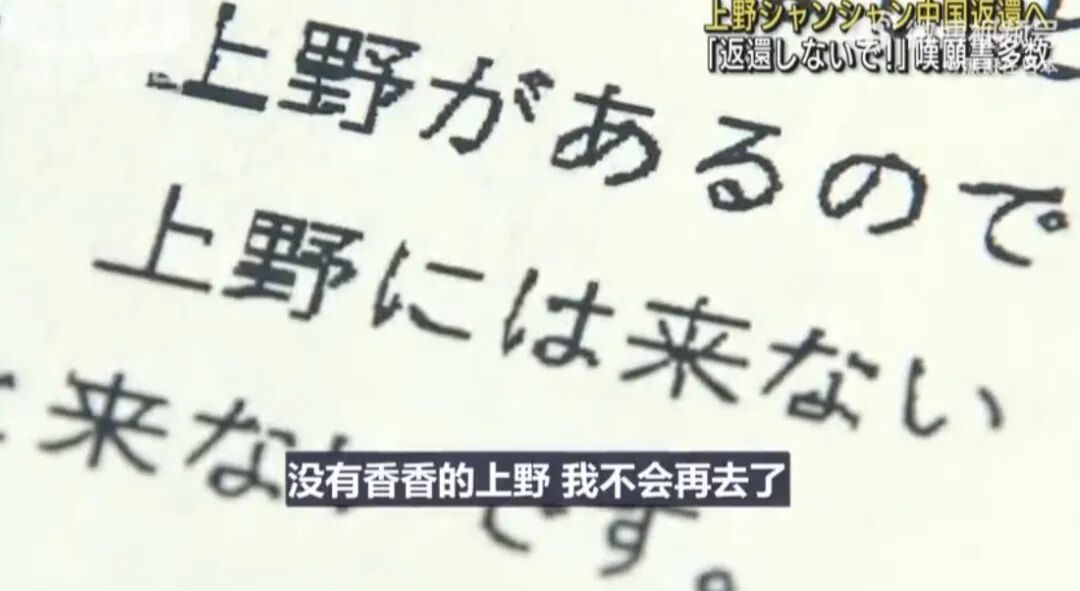 上野シャンシャン中国返還へ
「返還しないで!」嘆願書多数
上野があるので
上野には来ない
来な
です。
没有香香的上野 我不会再去了